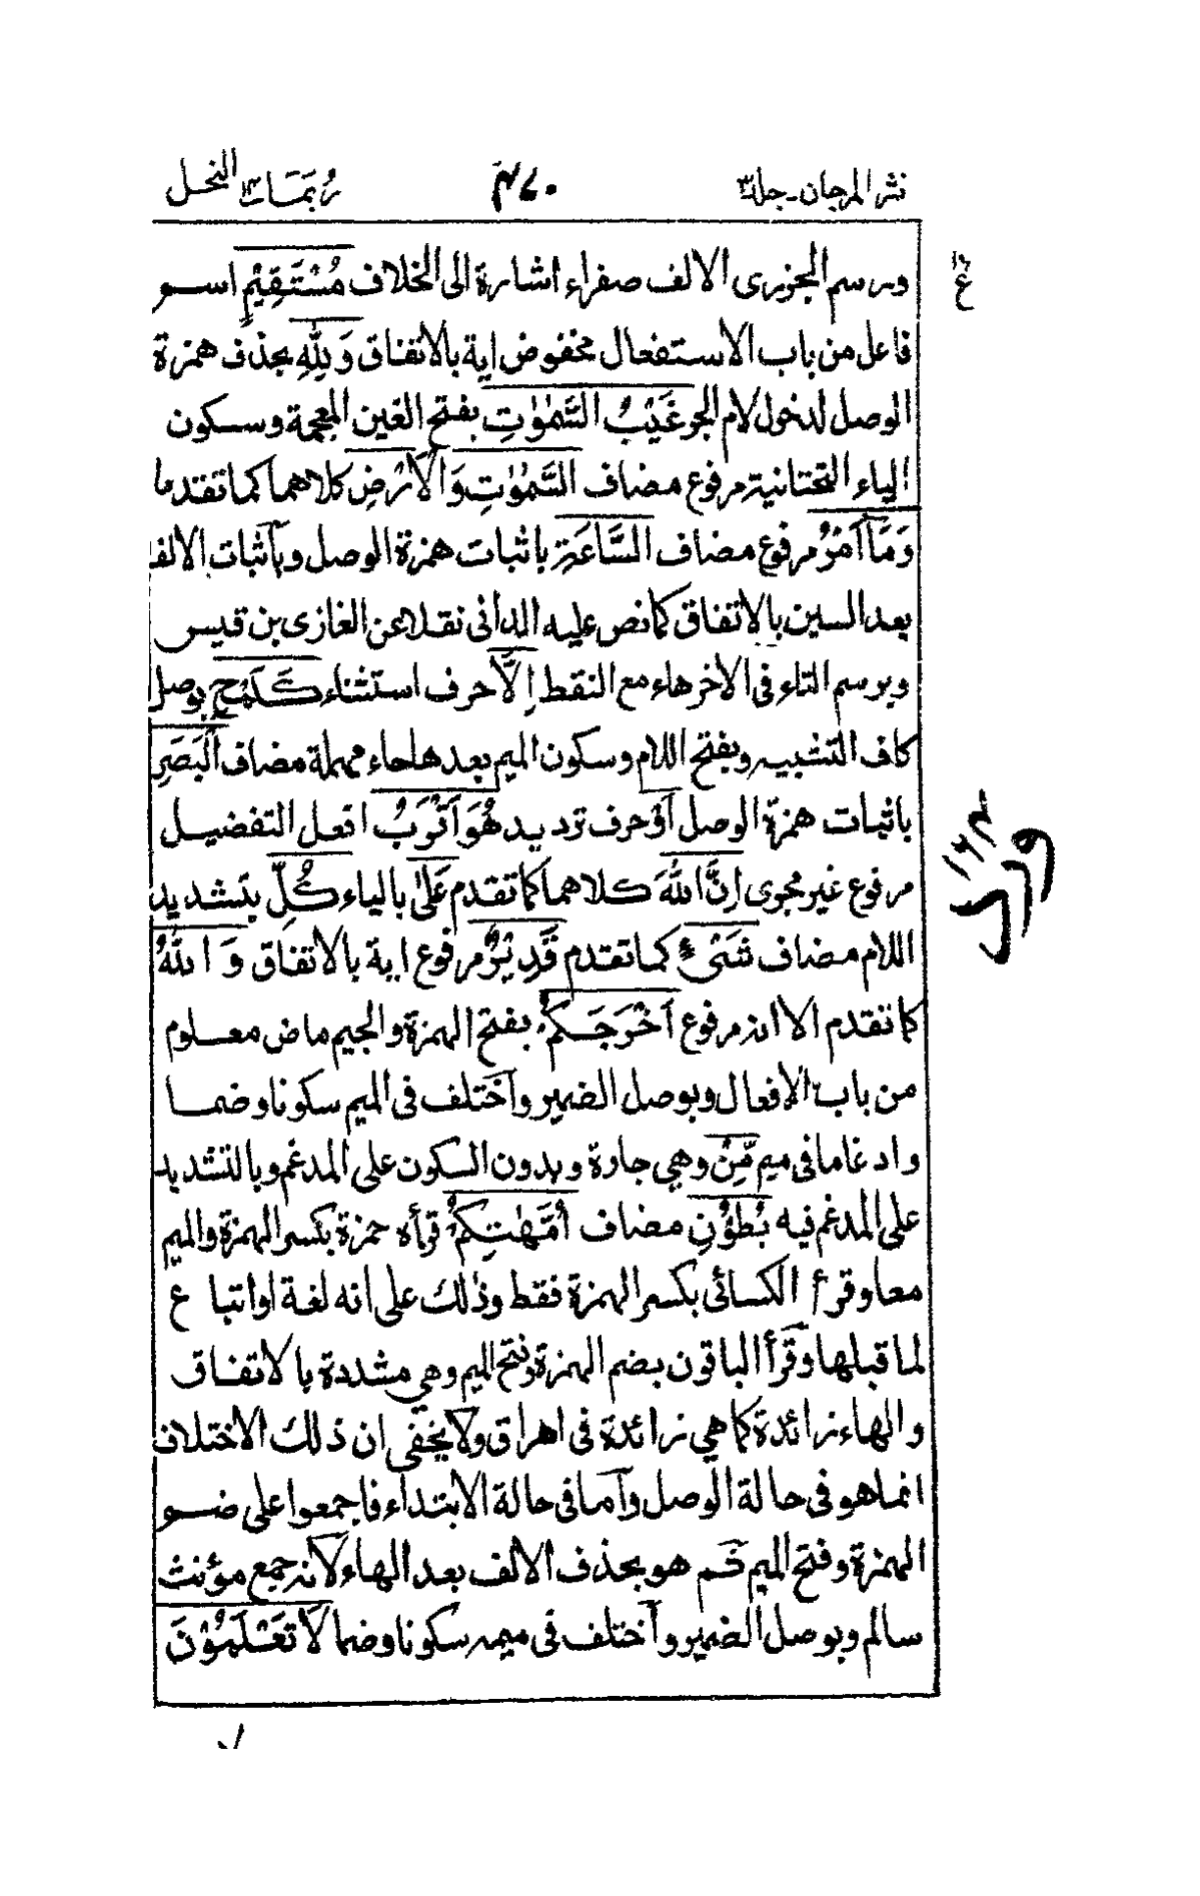 نثر المرجان - جلد ٣
٤٧٠
ربما ١٤ النحل
ورسم الجزرى الالف صفراء اشارة الى الخلاف مُسْتَقِيْمٍ اسو
فاعل من باب الاستفعال مخفوض اية بالاتفاق وَلِلّٰهِ بحذف همزة
الوصل لدخول لام الجر غَيْبُ السَّمٰوٰتِ بفتح الغين المعجمة وسكون
الياء التحتانية مرفوع مضاف السَّمٰوٰتِ وَالْاَرْضِ كلاهما كما تقدما
وَمَآ اَمْرُ مرفوع مضاف السَّاعَةِ باثبات همزة الوصل وباثبات الالف
بعد السين بالاتفاق كما نص عليه الدانى نقلا عن الغازى بن قيس
وبرسم التاء فى الاخر هاء مع النقط اِلَّا حرف استثناء كَلَمْحِ بوصل
كاف التشبيه وبفتح اللام وسكون الميم بعدها حاء مهملة مضاف الْبَصَرِ
باثبات همزة الوصل اَوْ حرف ترديد هُوَ اَقْرَبُ افعل التفضيل
مرفوع غير مجرى اِنَّ اللّٰهَ كلاهما كما تقدم عَلٰى بالياء كُلِّ بتشديد
اللام مضاف شَىْءٍ كما تقدم قَدِيْرٌ مرفوع اية بالاتفاق وَ اللّٰهُ
كما تقدم الا انه مرفوع اَخْرَجَكُمْ بفتح الهمزة والجيم ماض معلوم
من باب الافعال وبوصل الضمير واختلف فى الميم سكونا وضما
وادغاما فى ميم مِّنْ وهي جارة وبدون السكون على المدغم وبالتشديد
على المدغم فيه بُطُوْنِ مضاف اُمَّهٰتِكُمْ قرأه حمزة بكسر الهمزة والميم
معا وقرأ الكسائى بكسر الهمزة فقط وذلك على انه لغة او اتباع
لما قبلها وقرأ الباقون بضم الهمزة وفتح الميم وهي مشددة بالاتفاق
والهاء زائدة كما هي زائدة فى اهراق ولا يخفى ان ذلك الاختلاف
انما هو فى حالة الوصل واما فى حالة الابتداء فاجمعوا على ضو
الهمزة وفتح الميم ثم هو بحذف الالف بعد الهاء لانه جمع مؤنث
سالم وبوصل الضمير واختلف فى ميمه سكونا وضما لَا تَعْلَمُوْنَ